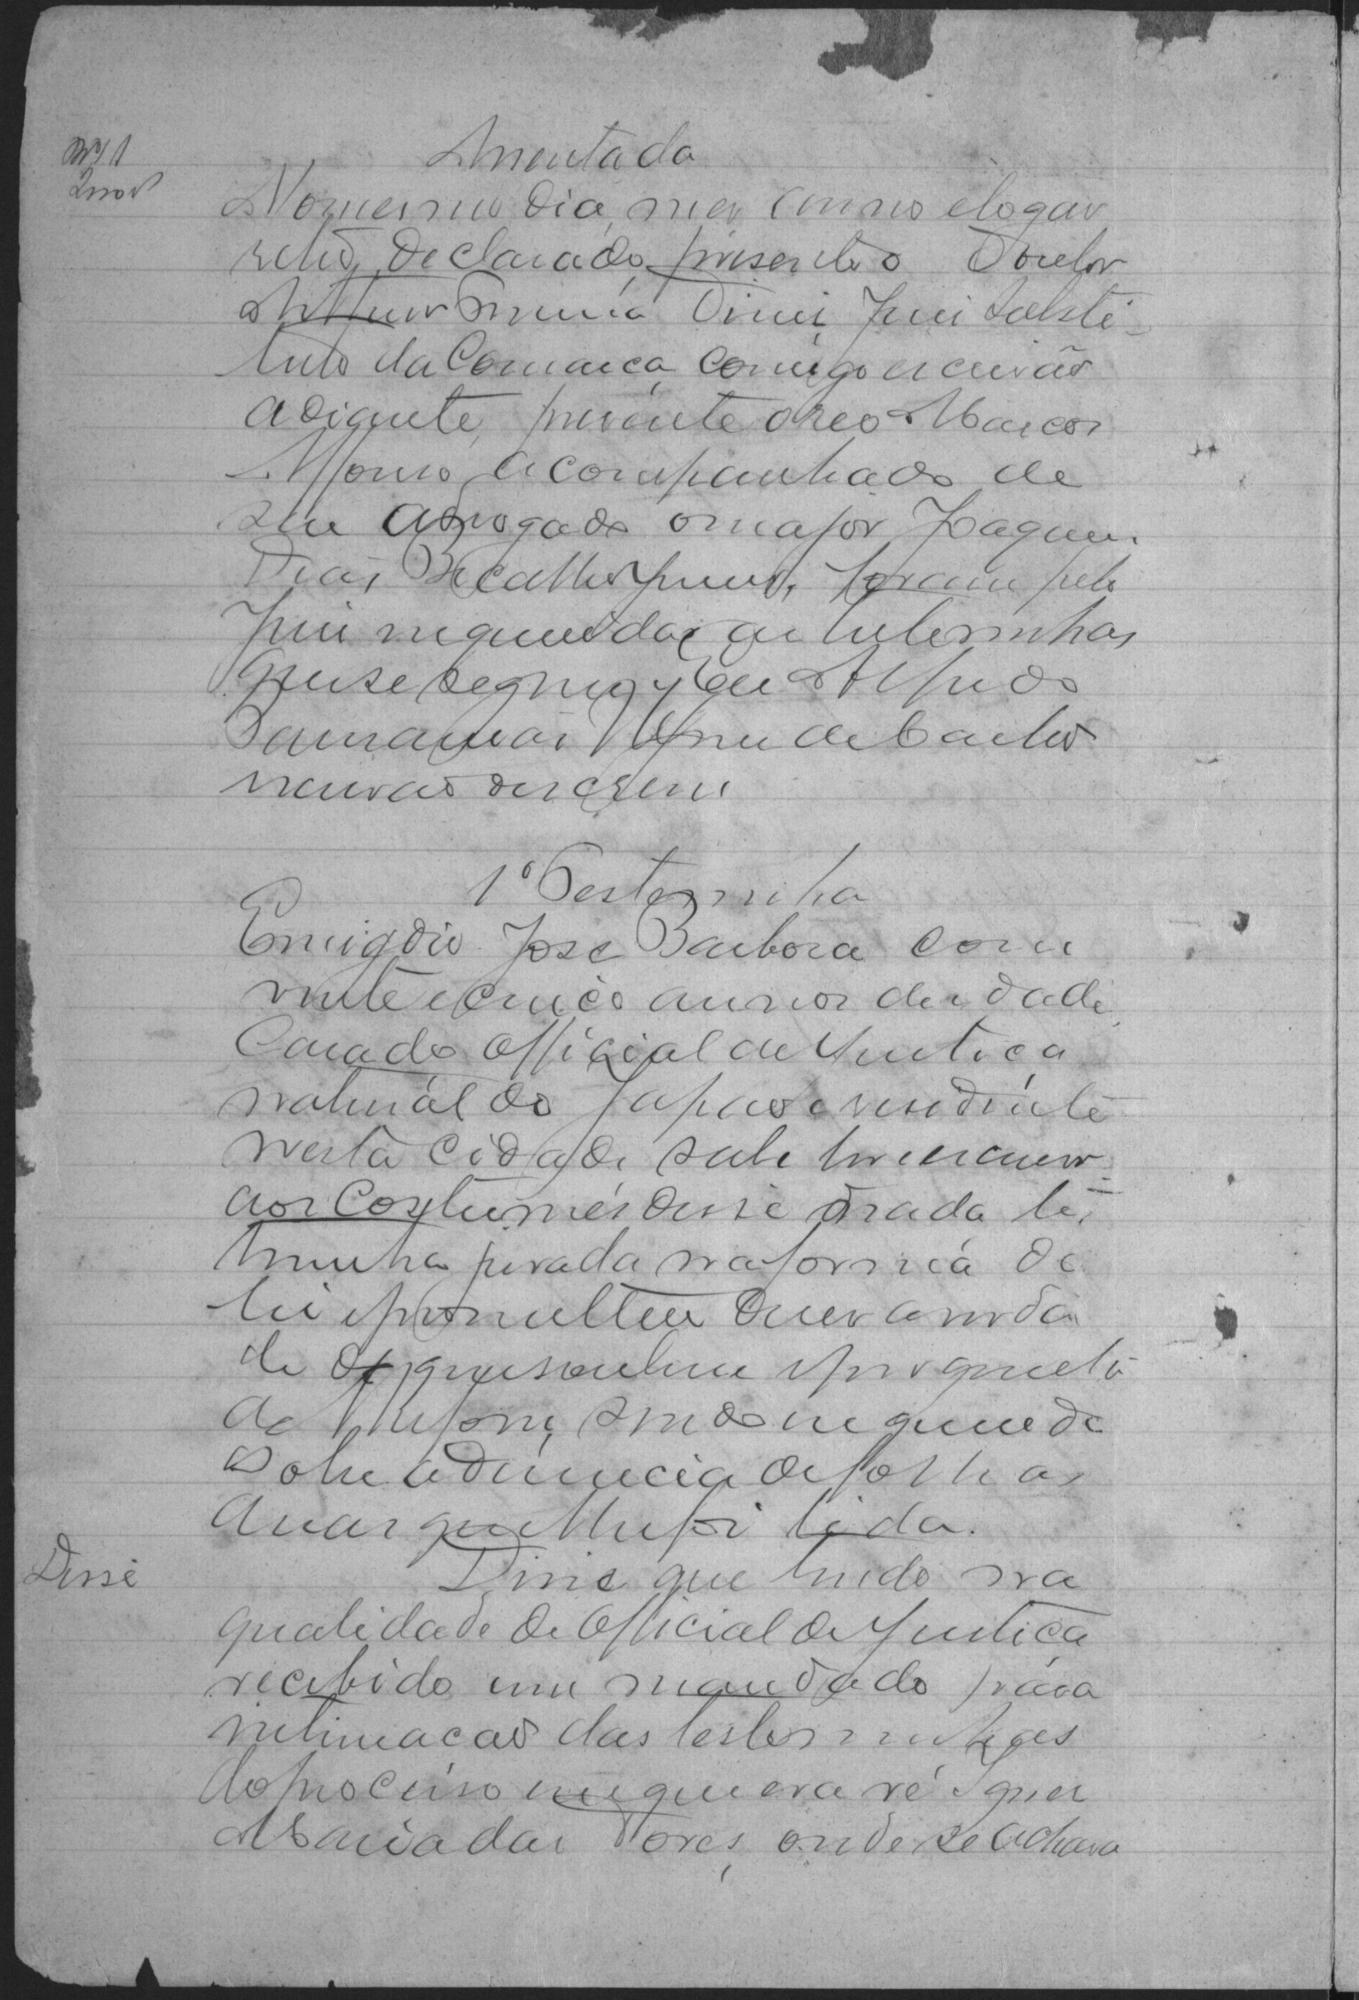 Assentada
No mesmo dia, mez anno e logar
retro declarado presente o Doutor
Arthur Diniz Juiz Substi-
tuto da Comarca, comigo escrivão
adiante, presente o reo Marcos
Afonso, acompanhado de
seu advogado o major Joaquim
Dias Bicalho foram pelo
Juiz inqueridas as testeminhas
que se segue, Eu Alfredo
de Castro
escrivão escrevi
1ª Testeminha
Emigdio José Barbosa com
vinte e cinco annos de idade
Casado Official de Justiça
natural do Japão e residente
nesta cidade sabe ler e escrever
aos Costumes disse nada tes
teminha jurada na forma da
lei e prometteu dizer a verda
de do que soubesse e perguntado
lhe fosse, sendo inquerida
sobre a denuncia de folhas
duas que lhe foi lida.
Disse
Disse que tendo na
qualidade de Official de Justiça
recebido um mandado para
intimacão das testeminhas
do processo em que era ré Ignez
Maria das Dores, onde se achava